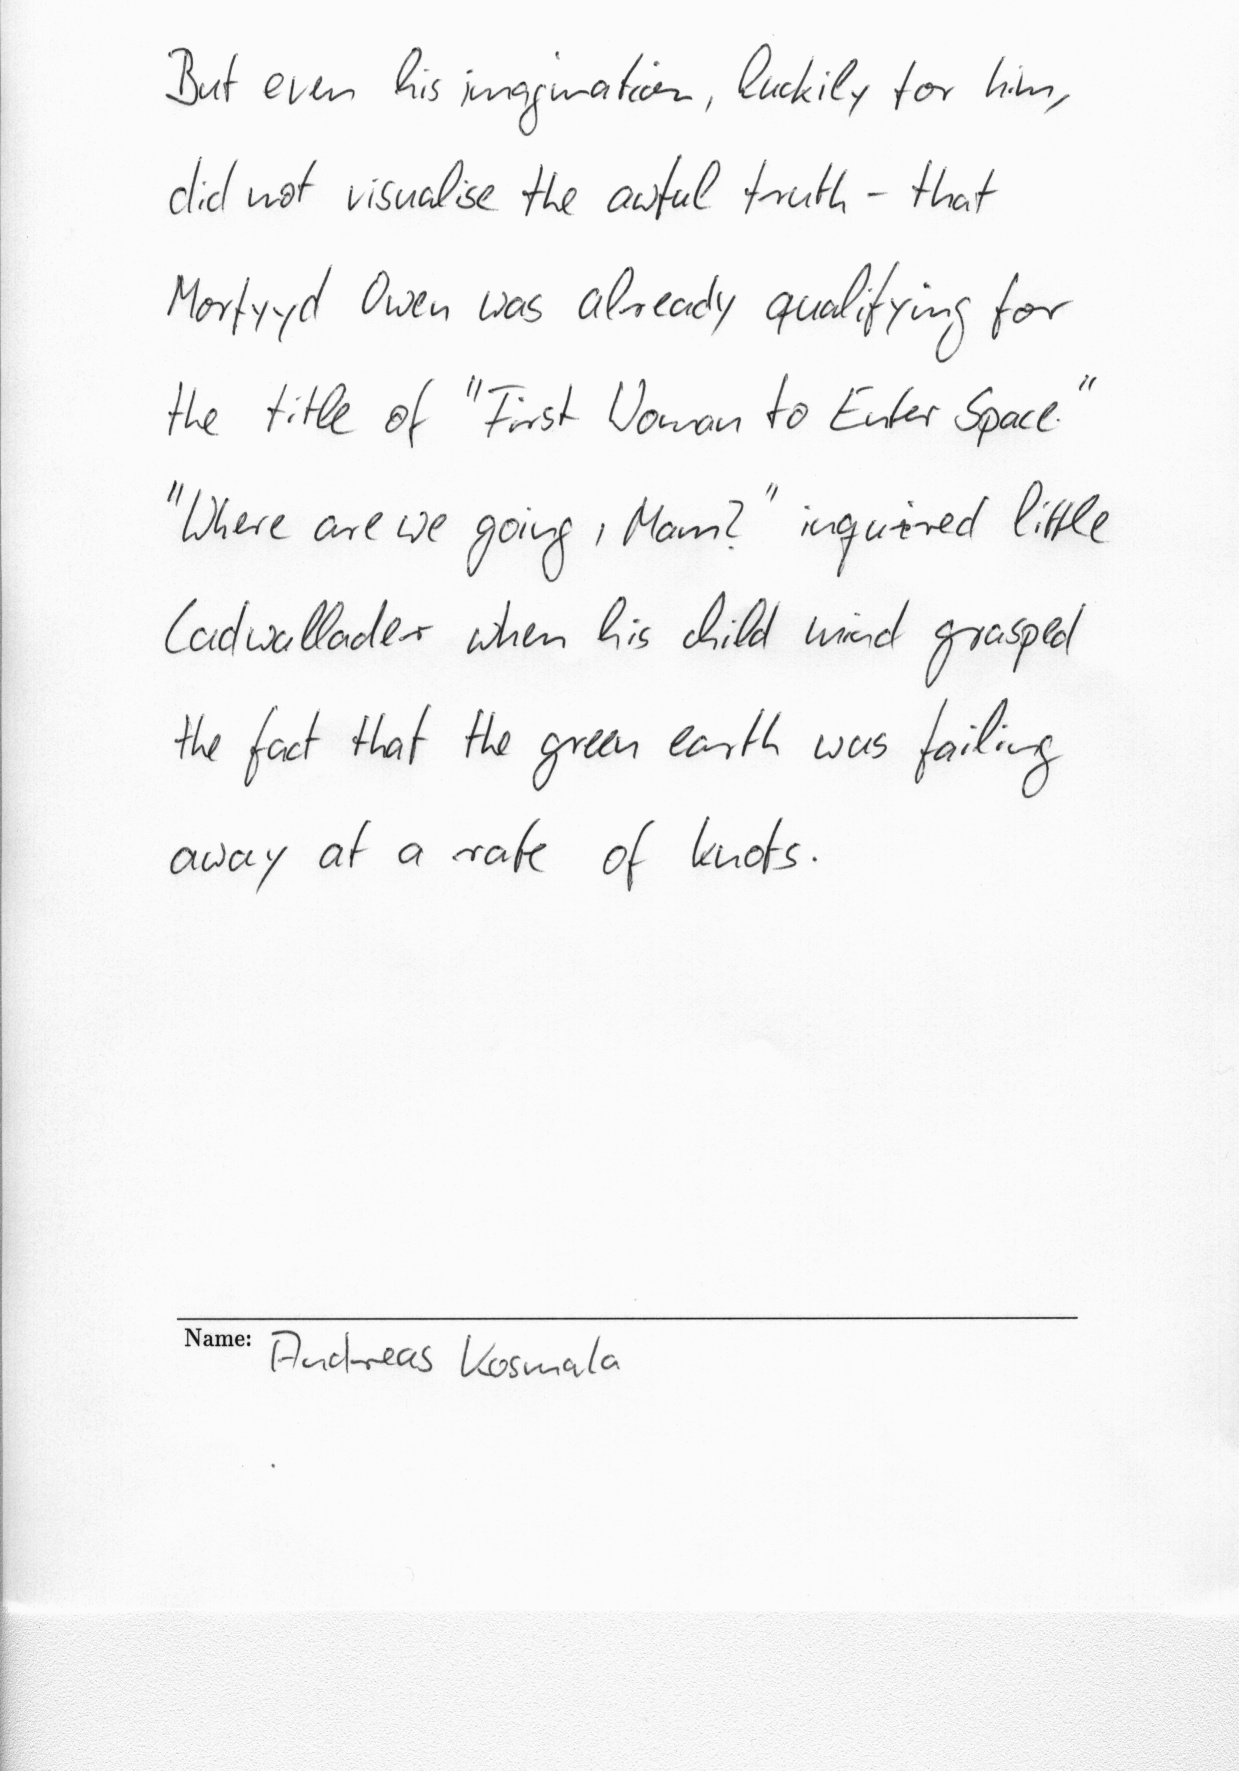 But even his imagination, luckily for him,
did not visualise the awful truth - that
Morfyyd Owen was already qualifying for
the title of "First Woman to Enter Space."
"Where are we going, Mam?" inquired little
Cadwallader when his child mind grasped
the fact that the green earth was failing
away at a rate of knots.
Name: Andreas Kosmala